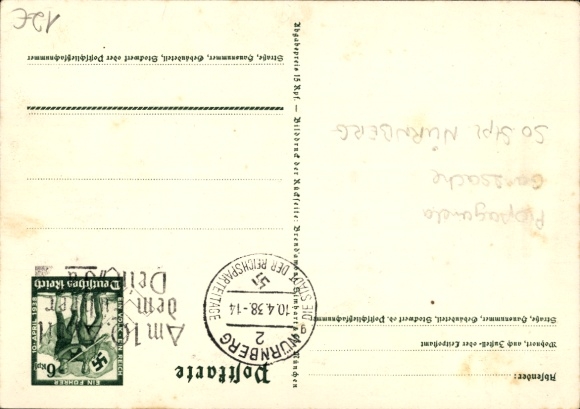 Postkarte
Absender:
Wohnort, auch Zustell- oder Leitpostamt
Straße, Hausnummer, Gebäudeteil, Stockwerk od. Postschließfachnummer
6 Rpf
EIN FÜHRER
EIN VOLK EIN REICH
10. APRIL 1938
Deutsches Reich
Am 10. April
dem Führer
Dein „Ja“
NÜRNBERG
2
10.4.38.-14
DIE STADT DER REICHSPARTEITAGE
g
Propaganda
Ganzsache
SO Stpl NÜRNBERG
Abgabepreis 15 Rpf. — Bilddruck der Rückseite:
München
Straße, Hausnummer, Gebäudeteil, Stockwerk oder Postschließfachnummer
12€